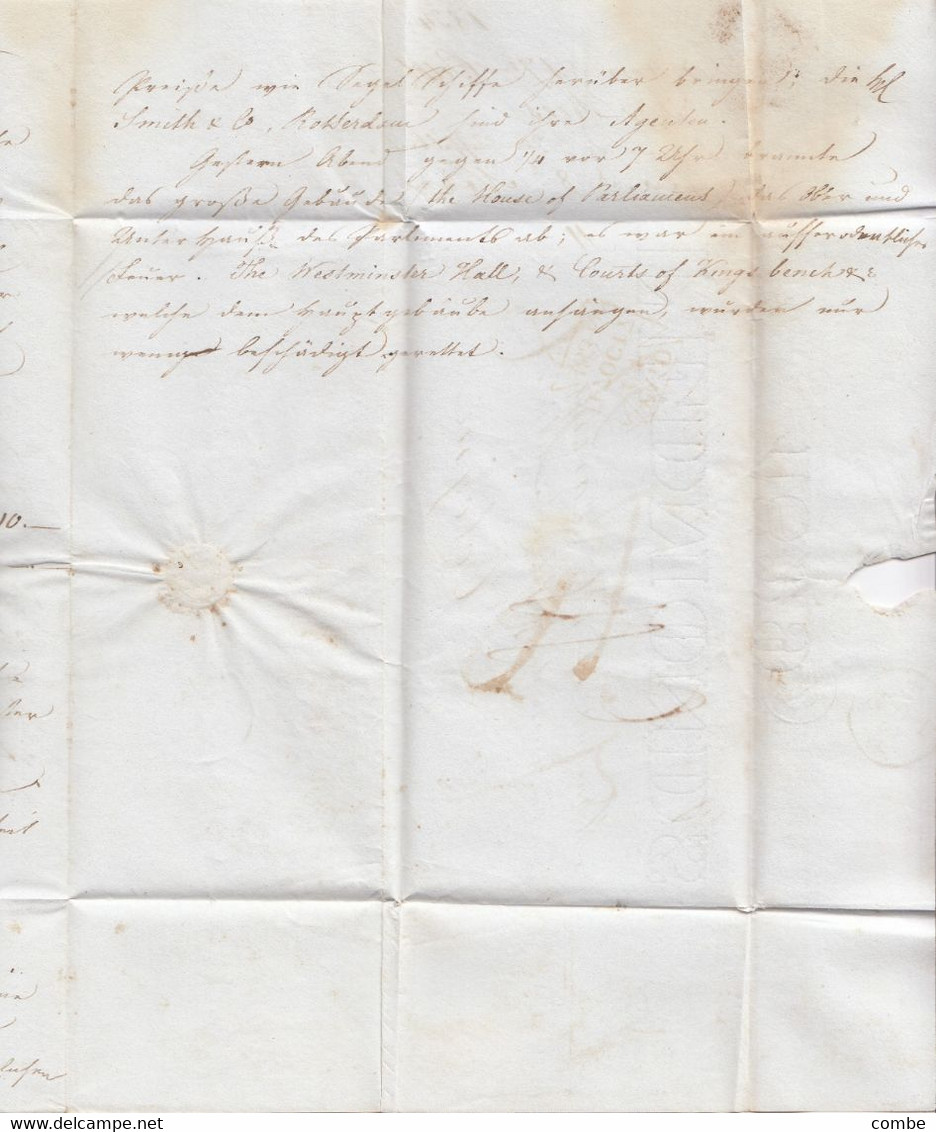 Preise wie Segel Schiffe herüber bringen; die
Smith & Co, Rotterdam sind ihre Agenten.
Gestern Abend gegen 1/4 vor 7 Uhr brannte
das große Gebäude, the House of Parliament, das Ober und
Unter Hauß des Parliments ab; es war ein aufferodentliches
Feuer. The Westminster Hall, & Courts of Kings bench &c
welche dem Hauptgebäude anhängen, wurden nur
wenig beschädigt gerettet.
10.—
combe